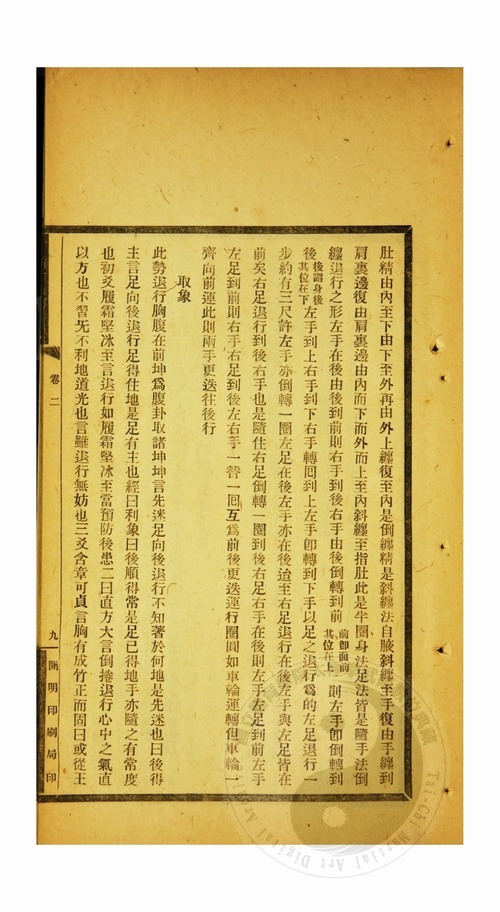 肚精由內至下由下至外再由外上纏復至內是倒纏精是斜纏法自腋斜纏至手復由手纏到
肩裏邊復由肩裏邊由內而下而外而上至內斜纏至指肚此是半圈身法足法皆是隨手法倒
纏退行之形左手在後由後到前則右手到後右手由後倒轉到前前卽面前其位在上則左手卽倒轉到
後後謂身後其位在下左手到上右手到下右手轉囘到上左手卽轉到下手以足之退行爲的左足退行一
步約有三尺許左手亦倒轉一圈左足在後左手亦在後迨至右足退行在後左手與左足皆在
前矣右足退行到後右手也是隨住右足倒轉一圈到後右足右手在後則左手左足到前左手
左足到前則右手右足到後左右手一替一囘互爲前後更迭運行圈圓如車輪運轉但車輪一
齊向前運此則兩手更迭往後行
取象
此勢退行胸腹在前坤爲腹卦取諸坤坤言先迷足向後退行不知著於何地是先迷也曰後得
主言足向後退行足得住地是足有主也經曰利象曰後順得常是足已得地手亦隨之有常度
也初爻履霜堅冰至言退行如履霜堅冰至當預防後患二曰直方大言倒捲退行心中之氣直
以方也不習旡不利地道光也言雖退行無妨也三爻含章可貞言胸有成竹正而固曰或從王
卷二
九
開明印刷局印
Tai-Chi Martial Art Digital